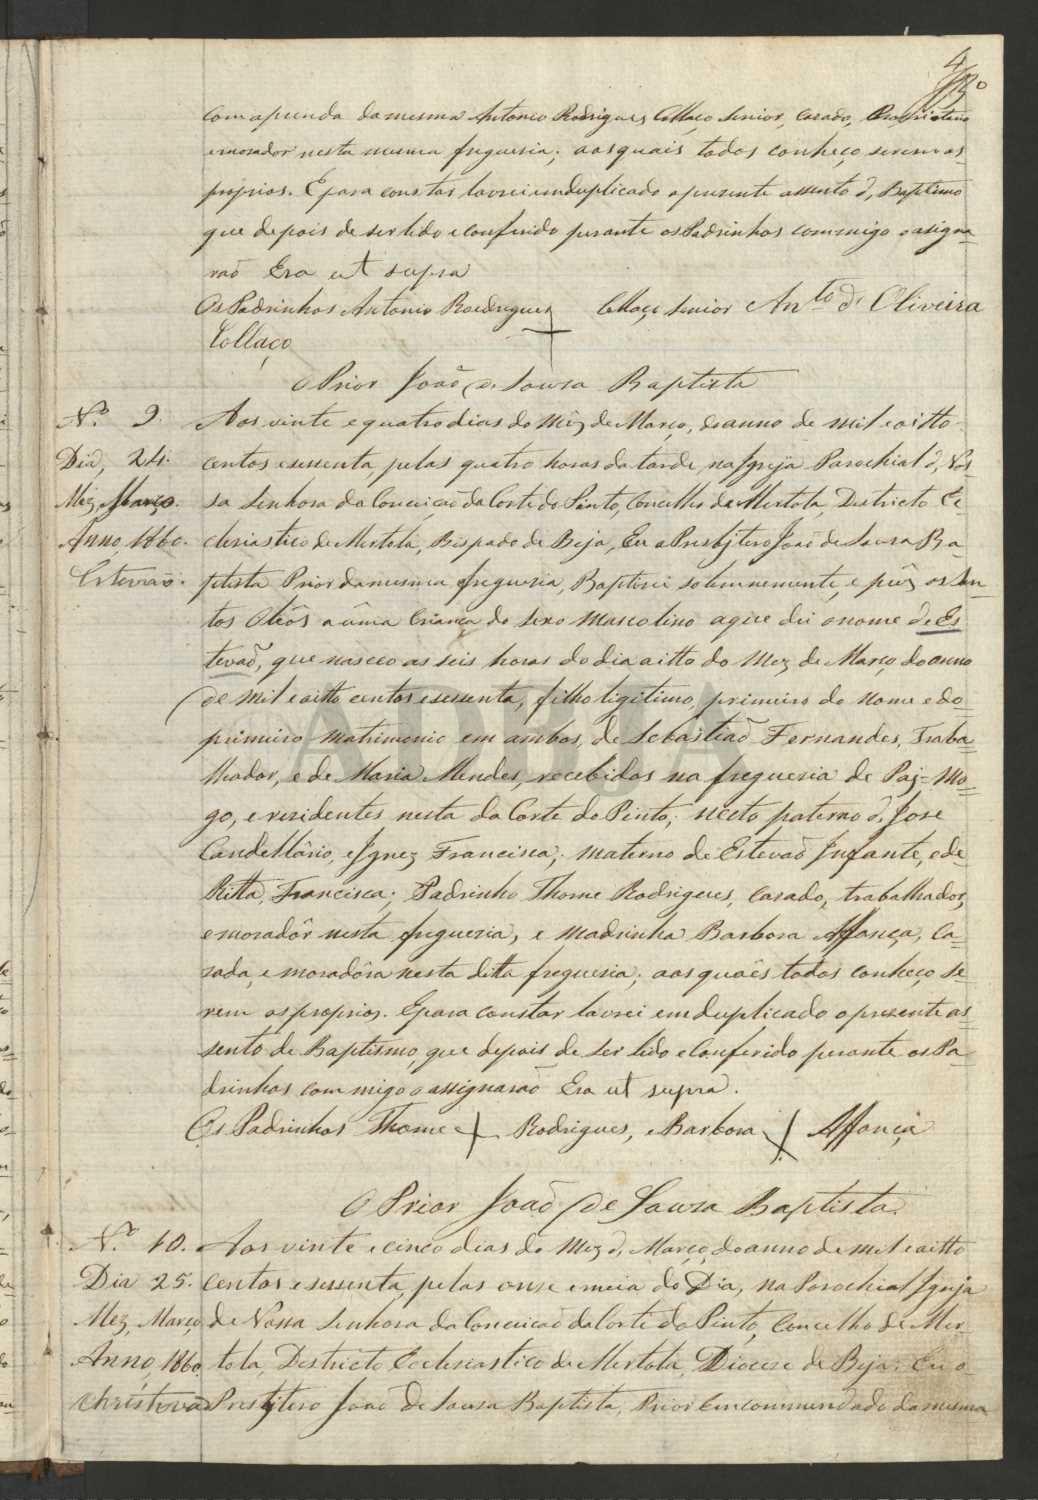 4
com a prenda da mesma Antonio Rodrigues Collaço Senior, casado, Proprietario
e morador nesta mesma freguesia; aos quais todos conheço serem os
proprios. E para constar lavrei em duplicado o presente assento d, Baptismo
que depois de ser lido e conferido perante os Padrinhos commigo o assigna-
raõ Era ut supra
Os Padrinhos Antonio Roedrigues + Collaço Senior Anto d' Oliveira
Collaço
O Prior Joaõ de Souza Baptista
N.º 9. Aos vinte e quatro dias do Mêz de Março, do anno de mil e oitto
Dia, 24. centos e sessenta, pelas quatro horas da tarde, na Igreja Parochial d, Nos-
Mêz, Março. sa Senhora da Conceicaõ da Corte do Pinto, Concelho de Mertola, Districto Ec-
Anno, 1860. clesiastico de Mertola, Bispado de Beja, Eu o Presbjtero Joaõ de Souza Ba-
Estevaõ. ptista Prior da mesma freguesia, Baptisei solemnemente, e pûz os San-
tos Oleôs a ûma Criança do sexo Mascolino a que dei o nome de Es
tevaõ, que nasceo as seis horas do dia oitto do Mez de Março do anno
de mil e oitto centos e sessenta, filho ligitimo, primeiro do nome e do
primeiro Matrimonio em ambos, de Sebastiaõ Fernandes, Traba-
lhador, e de Maria Mendes, recebidos na freguesia de Paj-Mo-
go, e rezidentes nesta da Corte do Pinto; neto paterno d, Jose
Candellário, e Jgnez Francisca; materno de Estevaõ Infante, e de
Ritta, Francisca; Padrinho Thome Rodrigeres, casado, trabalhador,
e moradôr nesta freguesia, e Madrinha Barbora Affonça, Ca-
sada, e moradôra nesta ditta freguesia; aos quaês todos conheço se-
rem os proprios. E para constar lavrei em duplicado o presente as-
sento de Baptismo, que depois de ser lido e Conferido perante os Pa
drinhos commigo o assignaraõ Era ut supra.
Os Padrinhos Thome + Rodrigues, e Barbora + Affonça
O Prior Joaõ de Souza Baptista
N.º 10. Aos vinte e cinco dias do Mez d, Março, do anno de mil e oitto
Dia 25. Centos e sessenta, pelas onse e meia do Dia, na Parochial Igreja
Mez, Março, de Nossa Senhora da Conceicaõ da Corte do Pinto, Concelho de Mer-
Anno, 1860. tola, Districto Ecclesiastico de Mertola, Diocese de Beja. Eu o
Christovaõ Presbjtero Joaõ de Souza Baptista, Prior Emcommendado da mesma
ADBJA